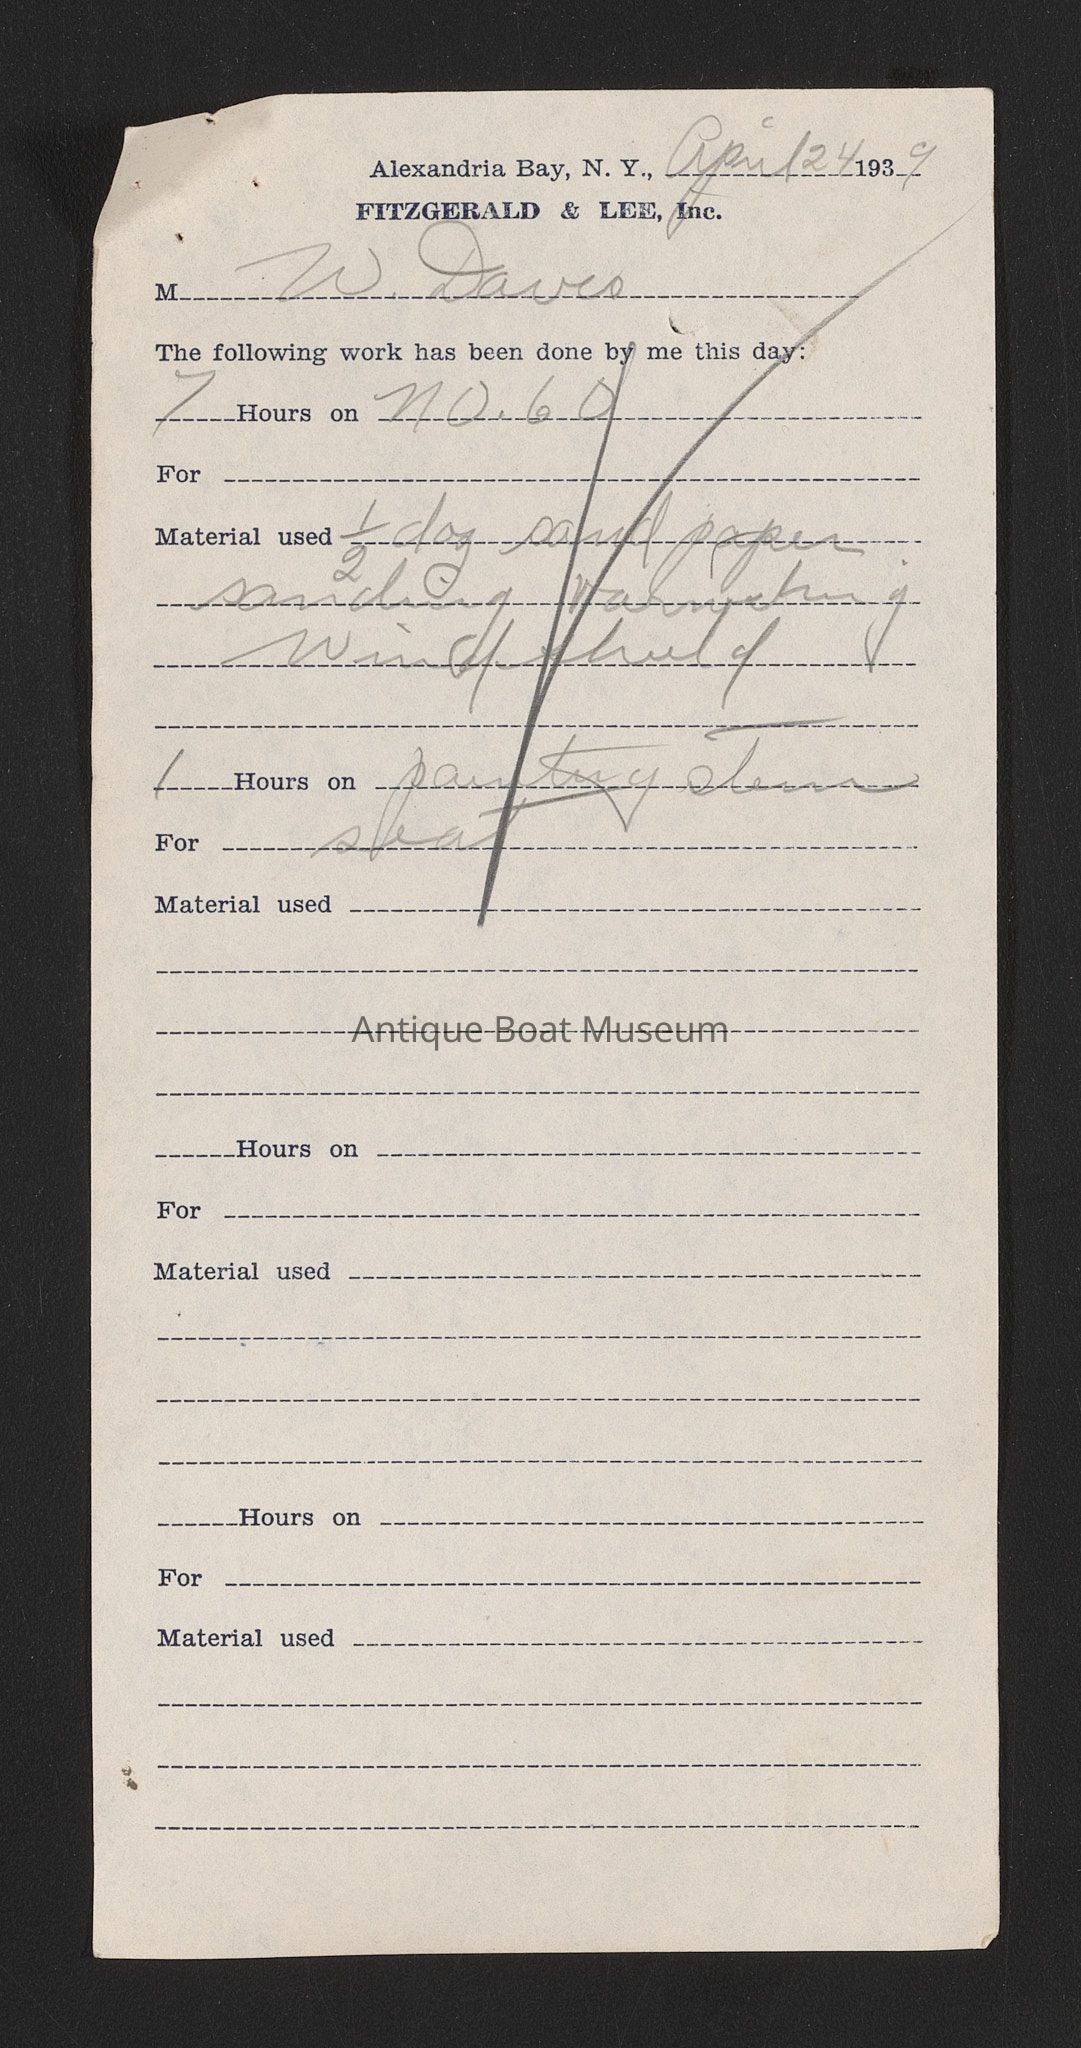 Alexandria Bay, N. Y., April 24 1939
FITZGERALD & LEE, Inc.
M W. Daves
The following work has been done by me this day:
7 Hours on NO. 60
For
Material used 1/2 doz sand paper
sanding varnishing
Windshield
1 Hours on painting stern
For seat
Material used
Antique Boat Museum
Hours on
For
Material used
Hours on
For
Material used